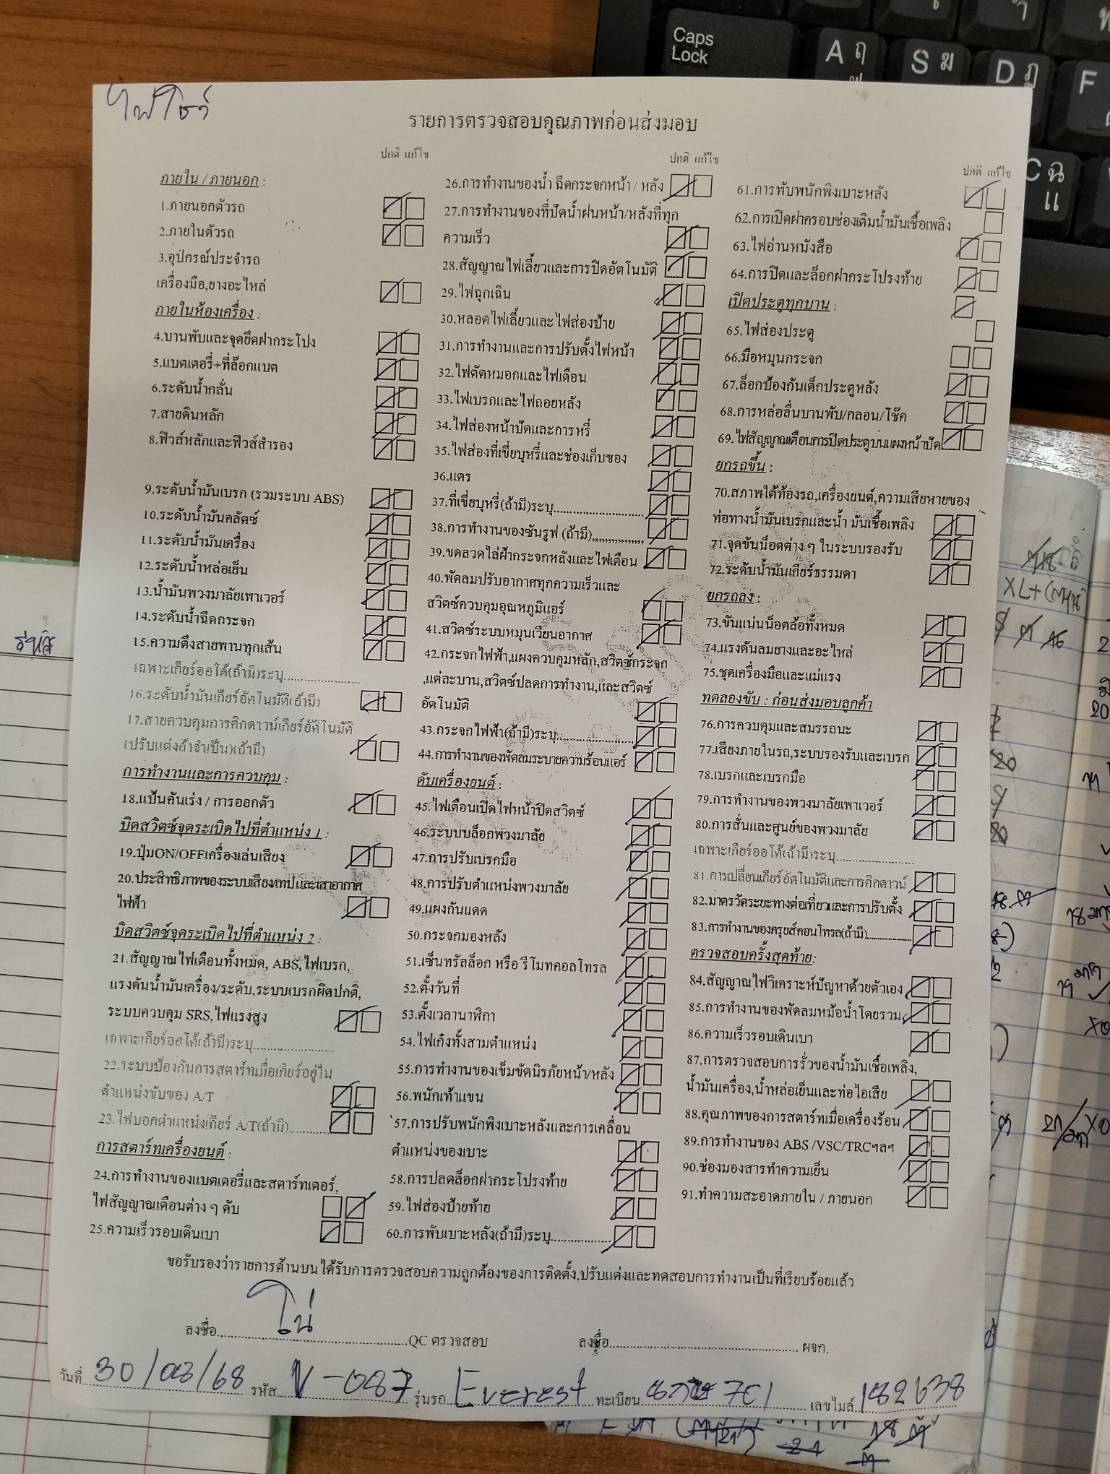 ไฟโชว์
รายการตรวจสอบคุณภาพก่อนส่งมอบ
ปกติ แก้ไข
ภายใน / ภายนอก :
1.ภายนอกตัวรถ
2.ภายในตัวรถ
3.อุปกรณ์ประจำรถ
เครื่องมือ,ยางอะไหล่
ภายในห้องเครื่อง :
4.บานพับและจุดยึดฝากระโปง
5.แบตเตอรี่+ที่ล๊อกแบต
6.ระดับน้ำกลั่น
7.สายดินหลัก
8.ฟิวส์หลักและฟิวส์สำรอง
9.ระดับน้ำมันเบรก (รวมระบบ ABS)
10.ระดับน้ำมันคลัตซ์
11.ระดับน้ำมันเครื่อง
12.ระดับน้ำหล่อเย็น
13.น้ำมันพวงมาลัยเพาเวอร์
14.ระดับน้ำฉีดกระจก
15.ความตึงสายพานทุกเส้น
เฉพาะเกียร์ออโต้(ถ้ามี)ระบุ
16.ระดับน้ำมันเกียร์อัตโนมัติ(ถ้ามี)
17.สายควบคุมการคิกดาวน์เกียร์อัตโนมัติ
(ปรับแต่งถ้าจำเป็น)(ถ้ามี)
การทำงานและการควบคุม :
18.แป้นคันเร่ง / การออกตัว
บิดสวิตช์จุดระเบิดไปที่ตำแหน่ง 1 :
19.ปุ่มON/OFFเครื่องเล่นเสียง
20.ประสิทธิภาพของระบบเสียงเทปและเสาอากาศ
ไฟฟ้า
บิดสวิตซ์จุดระเบิดไปที่ตำแหน่ง 2 :
21.สัญญาณไฟเตือนทั้งหมด, ABS,ไฟเบรก,
แรงดันน้ำมันเครื่อง/ระดับ,ระบบเบรกผิดปกติ,
ระบบควบคุม SRS,ไฟแรงสูง
เฉพาะเกียร์ออโต้(ถ้ามี)ระบุ
22.ระบบป้องกันการสตาร์ทเมื่อเกียร์อยู่ใน
ตำแหน่งขับของ A/T
23.ไฟบอกตำแหน่งเกียร์ A/T(ถ้ามี)
การสตาร์ทเครื่องยนต์ :
24.การทำงานของแบตเตอรี่และสตาร์ทเตอร์,
ไฟสัญญาณเตือนต่าง ๆ ดับ
25.ความเร็วรอบเดินเบา
ปกติ แก้ไข
26.การทำงานของน้ำ ฉีดกระจกหน้า / หลัง
27.การทำงานของที่ปัดน้ำฝนหน้า/หลังที่ทุก
ความเร็ว
28.สัญญาณไฟเลี้ยวและการปิดอัตโนมัติ
29.ไฟฉุกเฉิน
30.หลอดไฟเลี้ยวและไฟส่องป้าย
31.การทำงานและการปรับตั้งไฟหน้า
32.ไฟตัดหมอกและไฟเตือน
33.ไฟเบรกและไฟถอยหลัง
34.ไฟส่องหน้าปัดและการหรี่
35.ไฟส่องที่เขี่ยบุหรี่และช่องเก็บของ
36.แตร
37.ที่เขี่ยบุหรี่(ถ้ามี)ระบุ
38.การทำงานของซันรูฟ (ถ้ามี)
39.ขดลวดไล่ฝ้ากระจกหลังและไฟเตือน
40.พัดลมปรับอากาศทุกความเร็วและ
สวิตซ์ควบคุมอุณหภูมิแอร์
41.สวิตซ์ระบบหมุนเวียนอากาศ
42.กระจกไฟฟ้า,แผงควบคุมหลัก,สวิตซ์กระจก
,แต่ละบาน,สวิตซ์ปลดการทำงาน,และสวิตซ์
อัตโนมัติ
43.กระจกไฟฟ้า(ถ้ามี)ระบุ
44.การทำงานของพัดลมระบายความร้อนแอร์
ดับเครื่องยนต์ :
45.ไฟเตือนเปิดไฟหน้าปิดสวิตซ์
46.ระบบบล็อกพวงมาลัย
47.การปรับเบรกมือ
48.การปรับตำแหน่งพวงมาลัย
49.แผงกันแดด
50.กระจกมองหลัง
51.เซ็นทรัลล็อก หรือ รีโมทคอลโทรล
52.ตั้งวันที่
53.ตั้งเวลานาฬิกา
54.ไฟเก๋งทั้งสามตำแหน่ง
55.การทำงานของเข็มขัดนิรภัยหน้า/หลัง
56.พนักเท้าแขน
57.การปรับพนักพิงเบาะหลังและการเคลื่อน
ตำแหน่งของเบาะ
58.การปลดล็อกฝากระโปรงท้าย
59.ไฟส่องป้ายท้าย
60.การพับเบาะหลัง(ถ้ามี)ระบุ
ปกติ แก้ไข
61.การพับพนักพิงเบาะหลัง
62.การเปิดฝาครอบช่องเติมน้ำมันเชื้อเพลิง
63.ไฟอ่านหนังสือ
64.การปิดและล็อกฝากระโปรงท้าย
เปิดประตูทุกบาน :
65.ไฟส่องประตู
66.มือหมุนกระจก
67.ล็อกป้องกันเด็กประตูหลัง
68.การหล่อลื่นบานพับ/กลอน/โช๊ค
69.ไฟสัญญาณเตือนการปิดประตูบนแผงหน้าปัด
ยกรถขึ้น :
70.สภาพใต้ท้องรถ,เครื่องยนต์,ความเสียหายของ
ท่อทางน้ำมันเบรกและน้ำ มันเชื้อเพลิง
71.จุดขันน็อตต่าง ๆ ในระบบรองรับ
72.ระดับน้ำมันเกียร์ธรรมดา
ยกรถลง :
73.ขันแน่นน็อตล้อทั้งหมด
74.แรงดันลมยางและอะไหล่
75.ชุดเครื่องมือและแม่แรง
ทดลองขับ : ก่อนส่งมอบลูกค้า
76.การควบคุมและสมรรถนะ
77.เสียงภายในรถ,ระบบรองรับและเบรก
78.เบรกและเบรกมือ
79.การทำงานของพวงมาลัยเพาเวอร์
80.การสั่นและศูนย์ของพวงมาลัย
เฉพาะเกียร์ออโต้(ถ้ามี)ระบุ
81.การเปลี่ยนเกียร์อัตโนมัติและการคิกดาวน์
82.มาตรวัดระยะทางต่อเที่ยวและการปรับตั้ง
83.การทำงานของครุยส์คอนโทรล(ถ้ามี)
ตรวจสอบครั้งสุดท้าย:
84.สัญญาณไฟวิเคราะห์ปัญหาด้วยตัวเอง
85.การทำงานของพัดลมหม้อน้ำโดยรวม
86.ความเร็วรอบเดินเบา
87.การตรวจสอบการรั่วของน้ำมันเชื้อเพลิง,
น้ำมันเครื่อง,น้ำหล่อเย็นและท่อไอเสีย
88.คุณภาพของการสตาร์ทเมื่อเครื่องร้อน
89.การทำงานของ ABS /VSC/TRCฯลฯ
90.ช่องมองสารทำความเย็น
91.ทำความสะอาดภายใน / ภายนอก
ขอรับรองว่ารายการด้านบนได้รับการตรวจสอบความถูกต้องของการติดตั้ง,ปรับแต่งและทดสอบการทำงานเป็นที่เรียบร้อยแล้ว
ลงชื่อ โน่ QC ตรวจสอบ ลงชื่อ ผจก.
วันที่ 30/08/68 รหัส V-087 รุ่นรถ Everest ทะเบียน 701 เลขไมล์ 182638
Caps
Lock
A ฤ
S ฆ
D ฏ
F
C ฉ